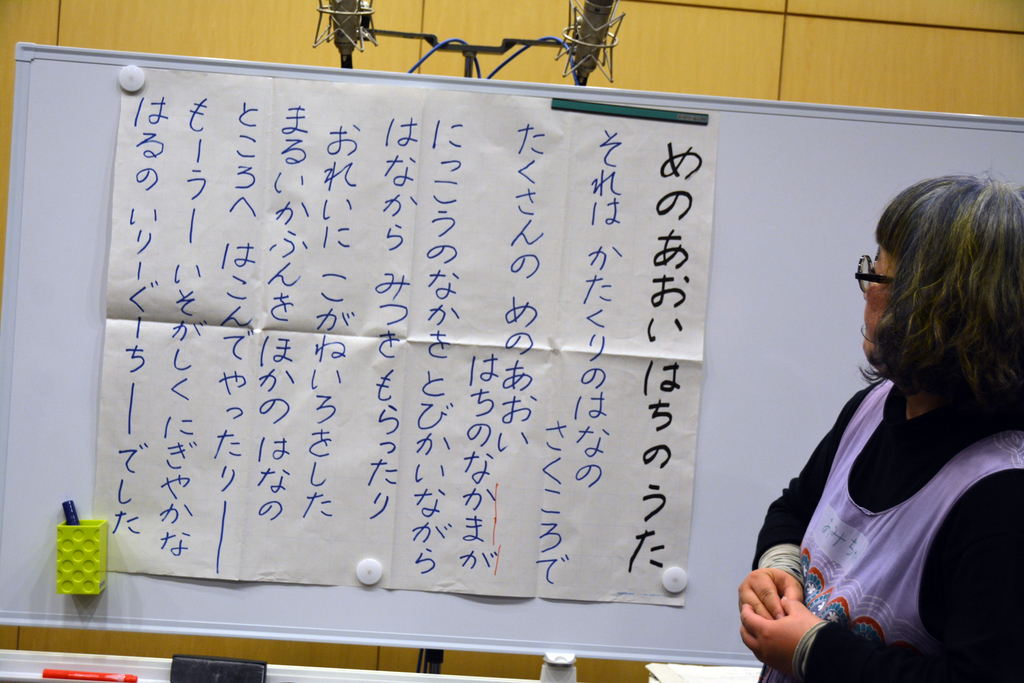 めのあおい はちのうた
それは かたくりのはなの
さくころで
たくさんの めのあおい
はちのなかまが
にっこうのなかを とびかいながら
はなから みつを もらったり
おれいに こがねいろをした
まるいかふんを ほかの はなの
ところへ はこんでやったりー
もーうー いそがしく にぎやかな
はるの いりーぐーちー でした